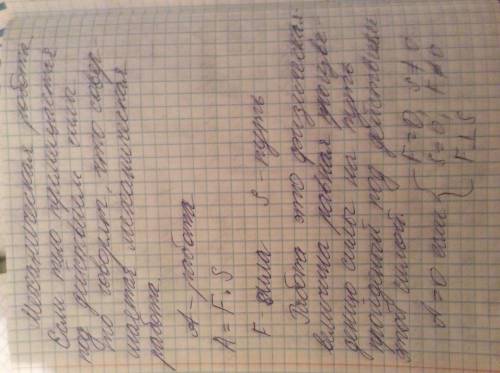 Механическая работа
Если тело премещается
под действием силы
то говорят, что совер
шается механическая
работа.
A - работа
A = F · S
F - сила S - путь
Работа это физическая
величина равная произве
дению силы на путь
пройденой под действием
этой силой.
A=0 если { F=0, S≠0
S=0, F≠0
F⊥S